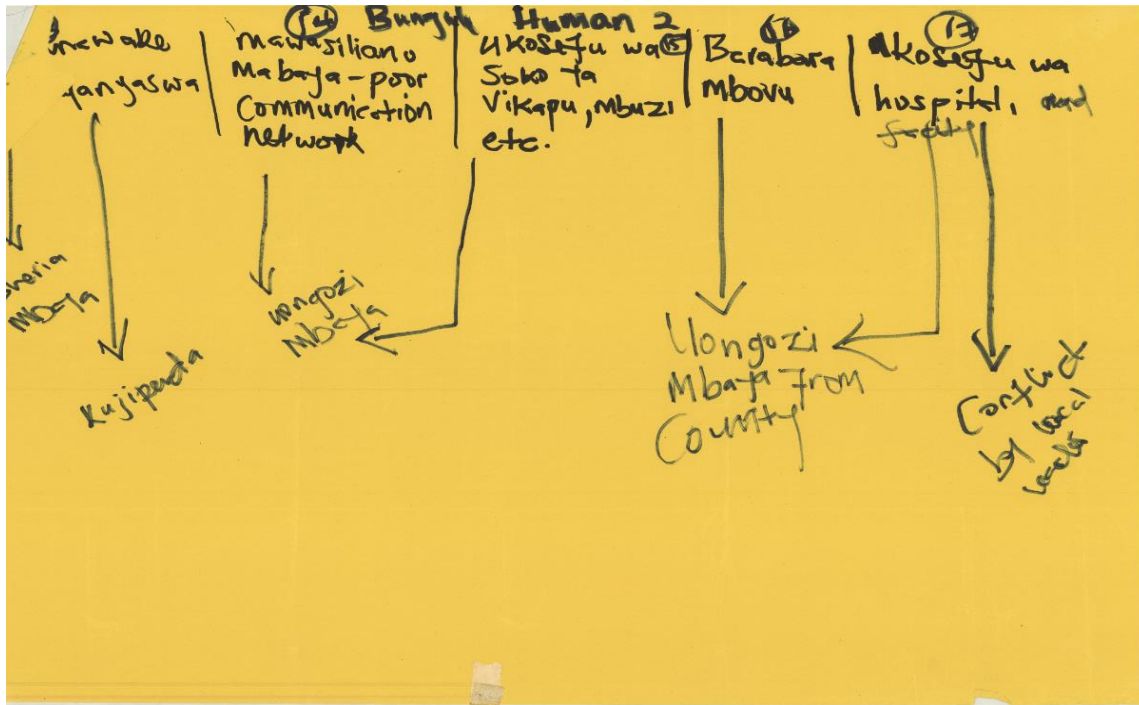 Human 2
mawake
yanyaswa
14
mawasiliano
Mabaya-poor
Communication
Network
Ukosefu wa 15
Soko ya
Vikapu, mbuzi
etc.
16
Barabara
Mbovu
17
Ukosefu wa
hospital, and
sheria
Mbaya
Kujipenda
uongozi
Mbaya
Uongozi
Mbaya from
County
Conflict
by local